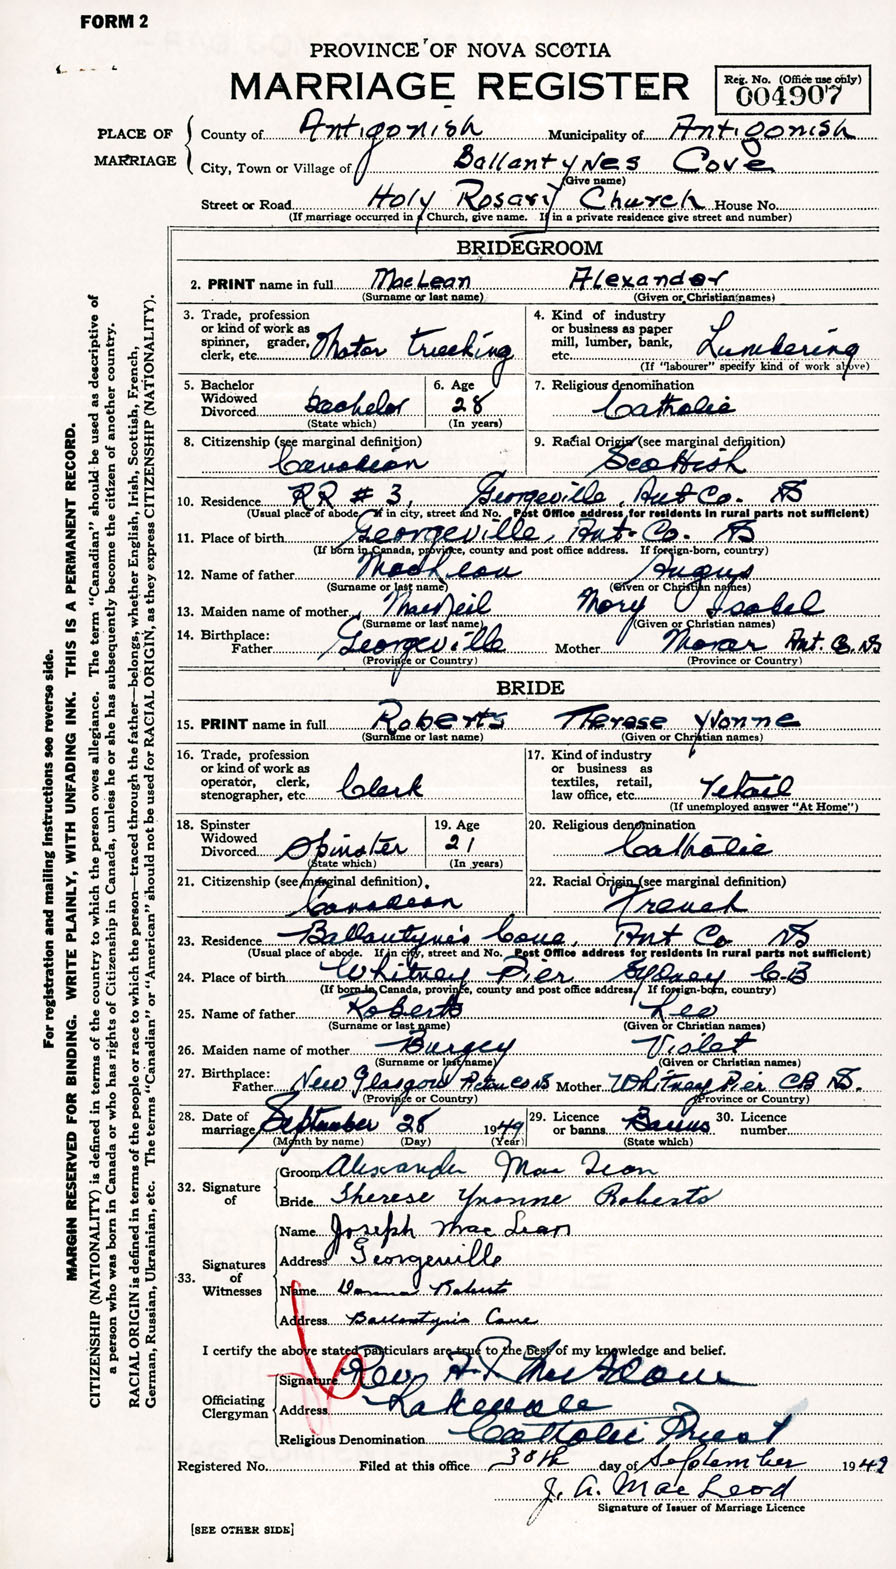 FORM 2
PROVINCE OF NOVA SCOTIA
MARRIAGE REGISTER
Reg. No. (Office use only)
004907
PLACE OF MARRIAGE
County of Antigonish Municipality of Antigonish
City, Town or Village of Ballantynes Cove
(Give name)
Street or Road Holy Rosary Church House No.
(If marriage occurred in a Church, give name. If in a private residence give street and number)
BRIDEGROOM
2. PRINT name in full MacLean Alexander
(Surname or last name) (Given or Christian names)
3. Trade, profession or kind of work as spinner, grader, clerk, etc. Motor Trucking
4. Kind of industry or business as paper mill, lumber, bank, etc. Lumbering
(If "labourer" specify kind of work above)
5. Bachelor Widowed Divorced bachelor
(State which)
6. Age 28
(In years)
7. Religious denomination
Catholic
8. Citizenship (see marginal definition)
Canadian
9. Racial Origin (see marginal definition)
Scottish
10. Residence RR # 3, Georgeville, Ant Co. NS
(Usual place of abode. If in city, street and No. Post Office address for residents in rural parts not sufficient)
11. Place of birth Georgeville, Ant. Co. NS
(If born in Canada, province, county and post office address. If foreign-born, country)
12. Name of father MacLean Angus
(Surname or last name) (Given or Christian names)
13. Maiden name of mother MacNeil Mary Isabel
(Surname or last name) (Given or Christian names)
14. Birthplace: Father Georgeville Mother Morar Ant. Co. NS
(Province or Country) (Province or Country)
BRIDE
15. PRINT name in full Roberts Therese Yvonne
(Surname or last name) (Given or Christian names)
16. Trade, profession or kind of work as operator, clerk, stenographer, etc. Clerk
17. Kind of industry or business as textiles, retail, law office, etc. retail
(If unemployed answer "At Home")
18. Spinster Widowed Divorced Spinster
(State which)
19. Age 21
(In years)
20. Religious denomination
Catholic
21. Citizenship (see marginal definition)
Canadian
22. Racial Origin (see marginal definition)
French
23. Residence Ballantyne's Cove, Ant Co NS
(Usual place of abode. If in city, street and No. Post Office address for residents in rural parts not sufficient)
24. Place of birth Whitney Pier Sydney C.B
(If born in Canada, province, county and post office address. If foreign-born, country)
25. Name of father Roberts Leo
(Surname or last name) (Given or Christian names)
26. Maiden name of mother Burgey Violet
(Surname or last name) (Given or Christian names)
27. Birthplace: Father New Glasgow Pictou Co NS Mother Whitney Pier CB NS.
(Province or Country) (Province or Country)
28. Date of marriage September 28 1949
(Month by name) (Day) (Year)
29. Licence or banns Banns
(State which)
30. Licence number
32. Signature of
Groom Alexander MacLean
Bride Therese Yvonne Roberts
33. Signatures of Witnesses
Name Joseph MacLean
Address Georgeville
Name Roberts
Address Ballantynes Cove
I certify the above stated particulars are true to the best of my knowledge and belief.
Officiating Clergyman
Signature Rev.
Address Lakevale
Religious Denomination Catholic Priest
Registered No. Filed at this office 30th day of September 1949
J. A. MacLeod
Signature of Issuer of Marriage Licence
[SEE OTHER SIDE]
For registration and mailing instructions see reverse side.
MARGIN RESERVED FOR BINDING. WRITE PLAINLY, WITH UNFADING INK. THIS IS A PERMANENT RECORD.
CITIZENSHIP (NATIONALITY) is defined in terms of the country to which the person owes allegiance. The term "Canadian" should be used as descriptive of
a person who was born in Canada or who has rights of Citizenship in Canada, unless he or she has subsequently become the citizen of another country.
RACIAL ORIGIN is defined in terms of the people or race to which the person—traced through the father—belongs, whether English, Irish, Scottish, French,
German, Russian, Ukrainian, etc. The terms "Canadian" or "American" should not be used for RACIAL ORIGIN, as they express CITIZENSHIP (NATIONALITY).